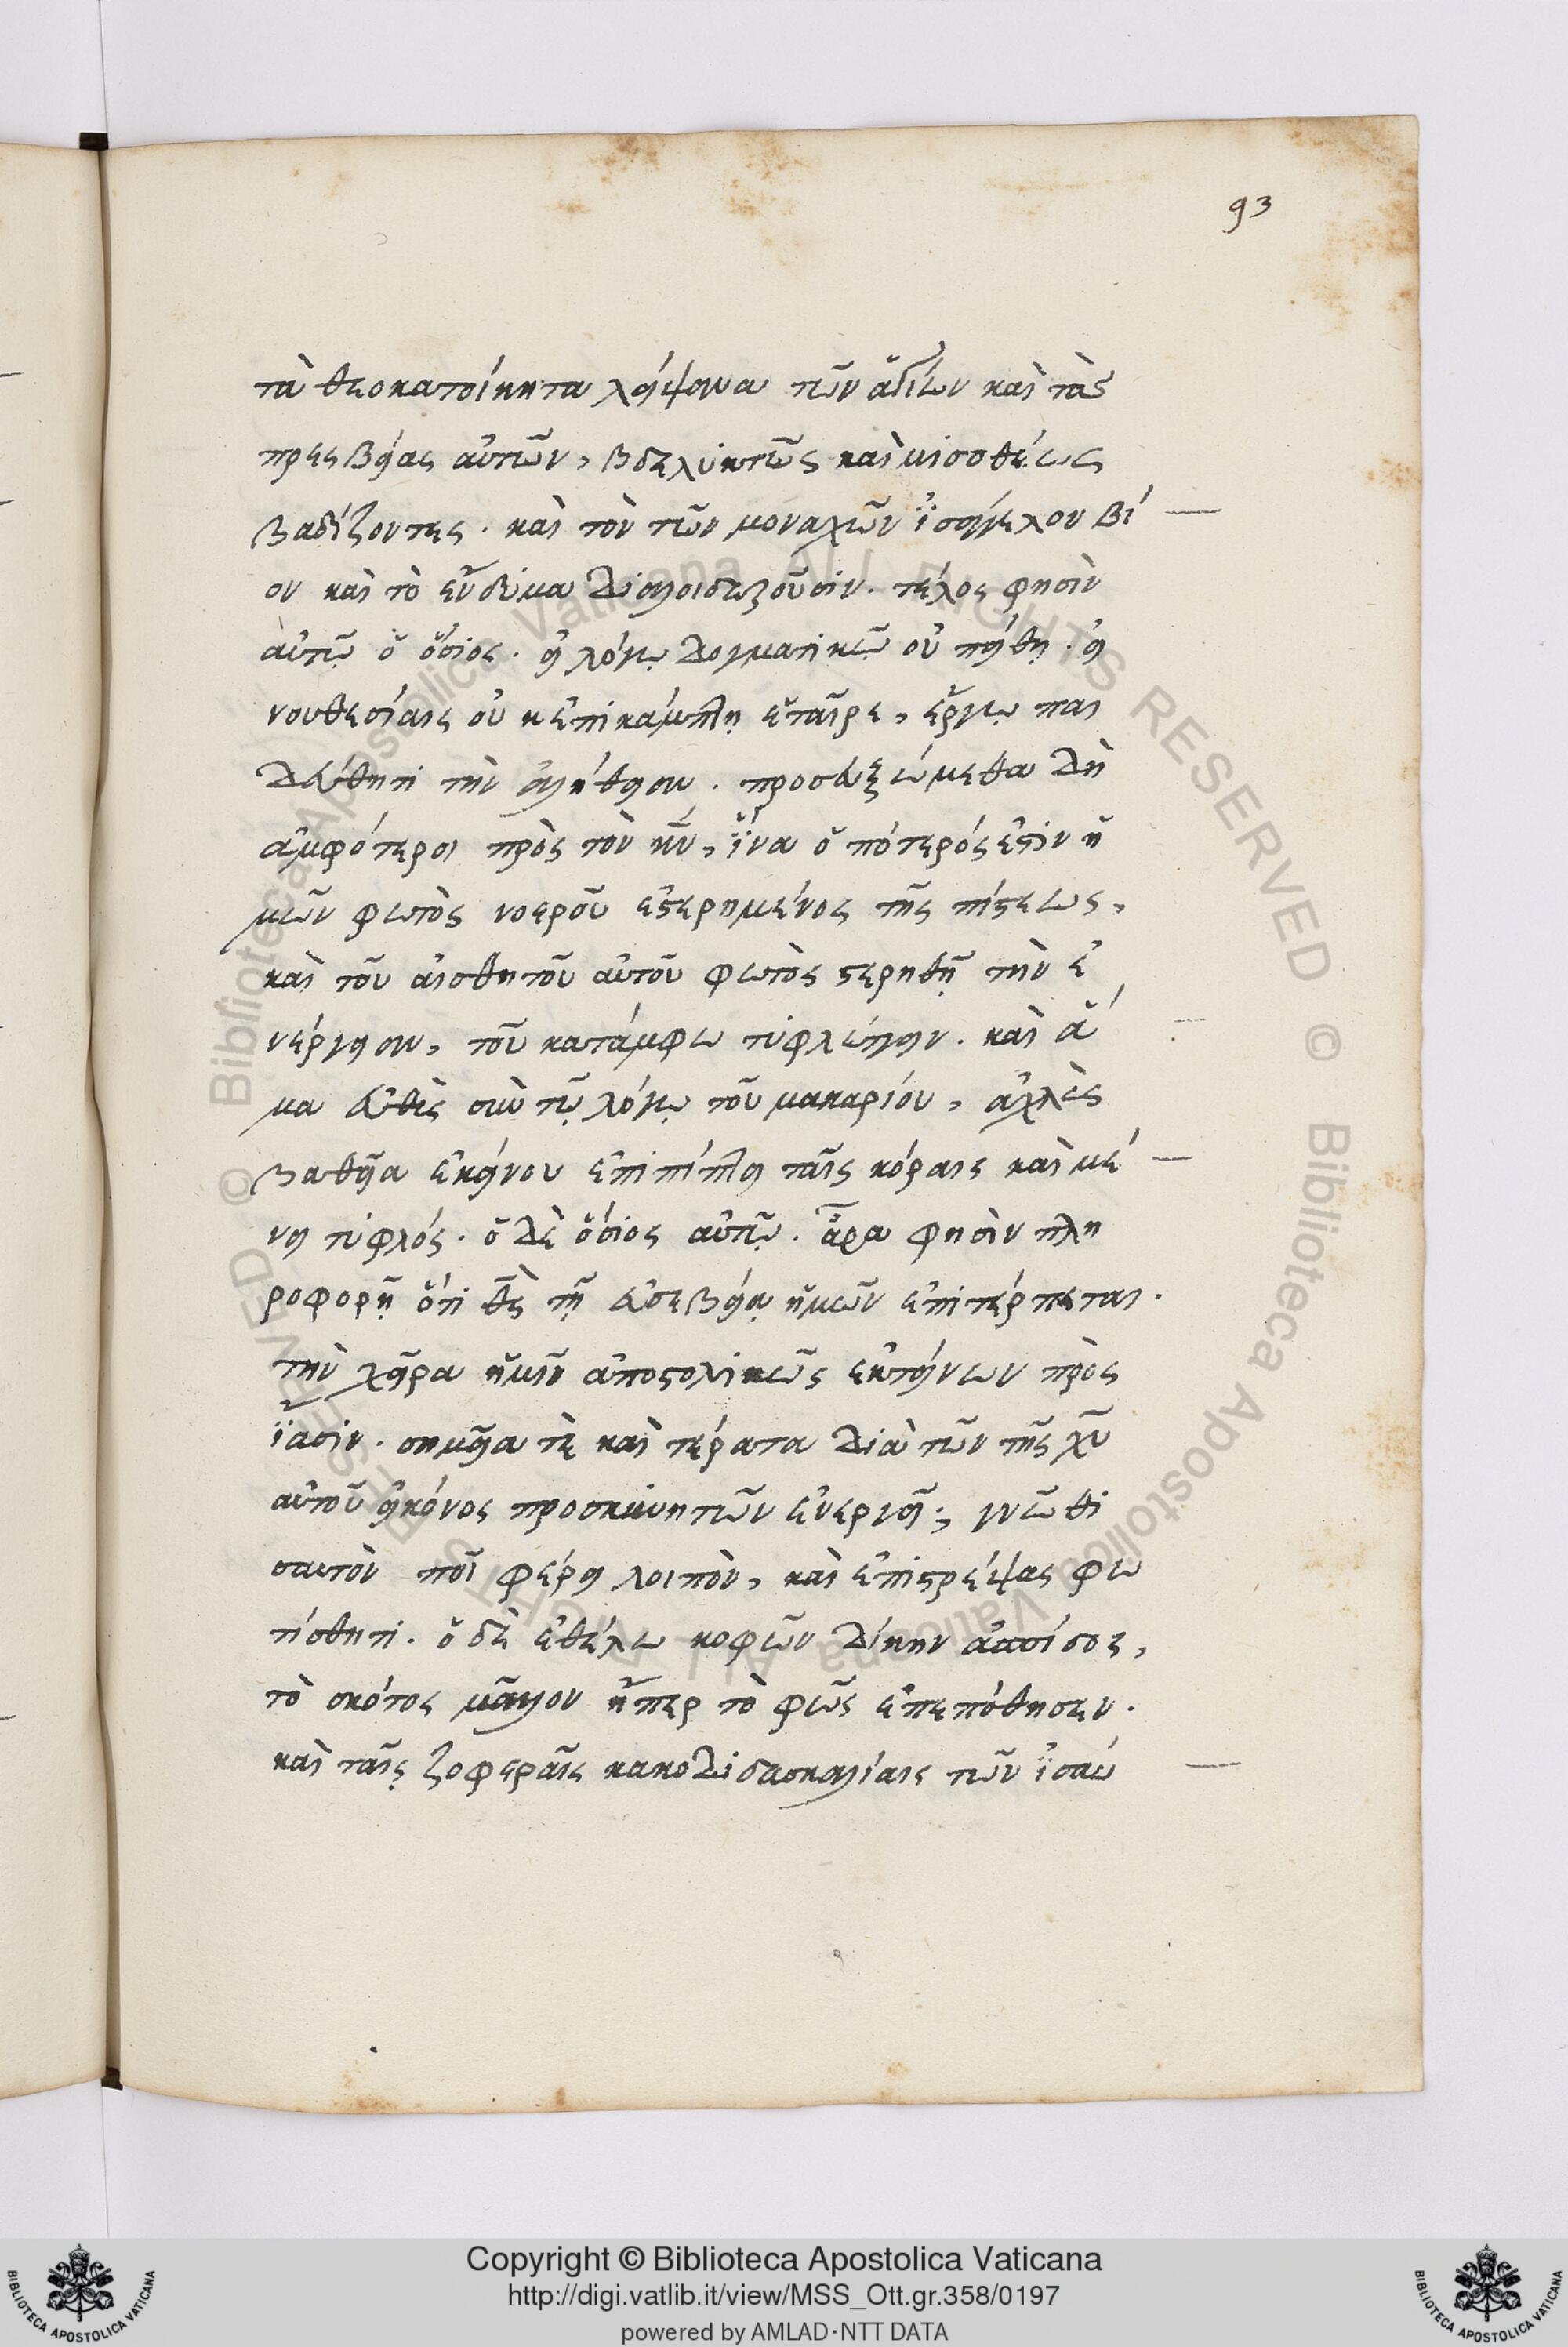 93
τὰ θεοκατοίκητα λείψανα τῶν ἁγίων καὶ τὰς
πρεσβείας αὐτῶν, βδελυκτῶς καὶ μισοθέως
βαδίζοντες. καὶ τὸν τῶν μοναχῶν ἰσάγγελον βί
ον καὶ τὸ ἔνδυμα τέλος φησὶν
αὐτῷ ὁ ὅσιος. εἰ λόγῳ δογματικῷ οὐ πείθῃ. εἰ
νουθεσίαις οὐκ ἐπικάμπτῃ ἑταῖρε, ἔργῳ παι
δεύθητι τὴν ἀλήθειαν. προσευξώμεθα δὴ
ἀμφότεροι πρὸς τὸν κν̅, ἵνα ὁπότερός ἐστιν ἡ
μῶν φωτὸς νοεροῦ ἐστερημένος τῆς πίστεως,
καὶ τοῦ αἰσθητοῦ αὐτοῦ φωτὸς στερηθῇ τὴν ἐ
νέργειαν, τοῦ κατάμφω τυφλώττειν. καὶ ἅ
μα εὐθὺς σὺν τῷ λόγῳ τοῦ μακαρίου, ἀχλὺς
βαθεῖα ἐκείνου ἐπιπίπτει ταῖς κόραις καὶ μέ
νει τυφλός. ὁ δὲ ὅσιος αὐτῷ. ἆρα φησὶν πλη
ροφορῇ ὅτι θς̅ τῇ εὐσεβείᾳ ἡμῶν ἐπιτέρπεται.
τὴν χεῖρα ἡμῖν ἀποστολικῶς ἐκτείνων πρὸς
ἴασιν. σημεῖα τὲ καὶ τέρατα διὰ τῶν τῆς χυ̅
αὐτοῦ εἰκόνος προσκυνητῶν ἐνεργεῖ; γνῶθι
σαυτὸν ποῖ φέρει λοιπὸν, καὶ ἐπιστρέψας φω
τίσθητι. ὁ δὲ ἐθέλω κοφῶν δίκην ἀσπίδος,
τὸ σκότος μᾶλλον ἤπερ τὸ φῶς ἐπεπόθησεν.
καὶ ταῖς ζοφεραῖς κακοδιδασκαλίαις τῶν ἰσαύ
Copyright © Biblioteca Apostolica Vaticana
http://digi.vatlib.it/view/MSS_Ott.gr.358/0197
powered by AMLAD·NTT DATA
BIBLIOTECA APOSTOLICA VATICANA
BIBLIOTECA APOSTOLICA VATICANA
© Biblioteca Apostolica Vaticana ALL RIGHTS RESERVED © Biblioteca Apostolica Vaticana ALL RIGHTS RESERVED